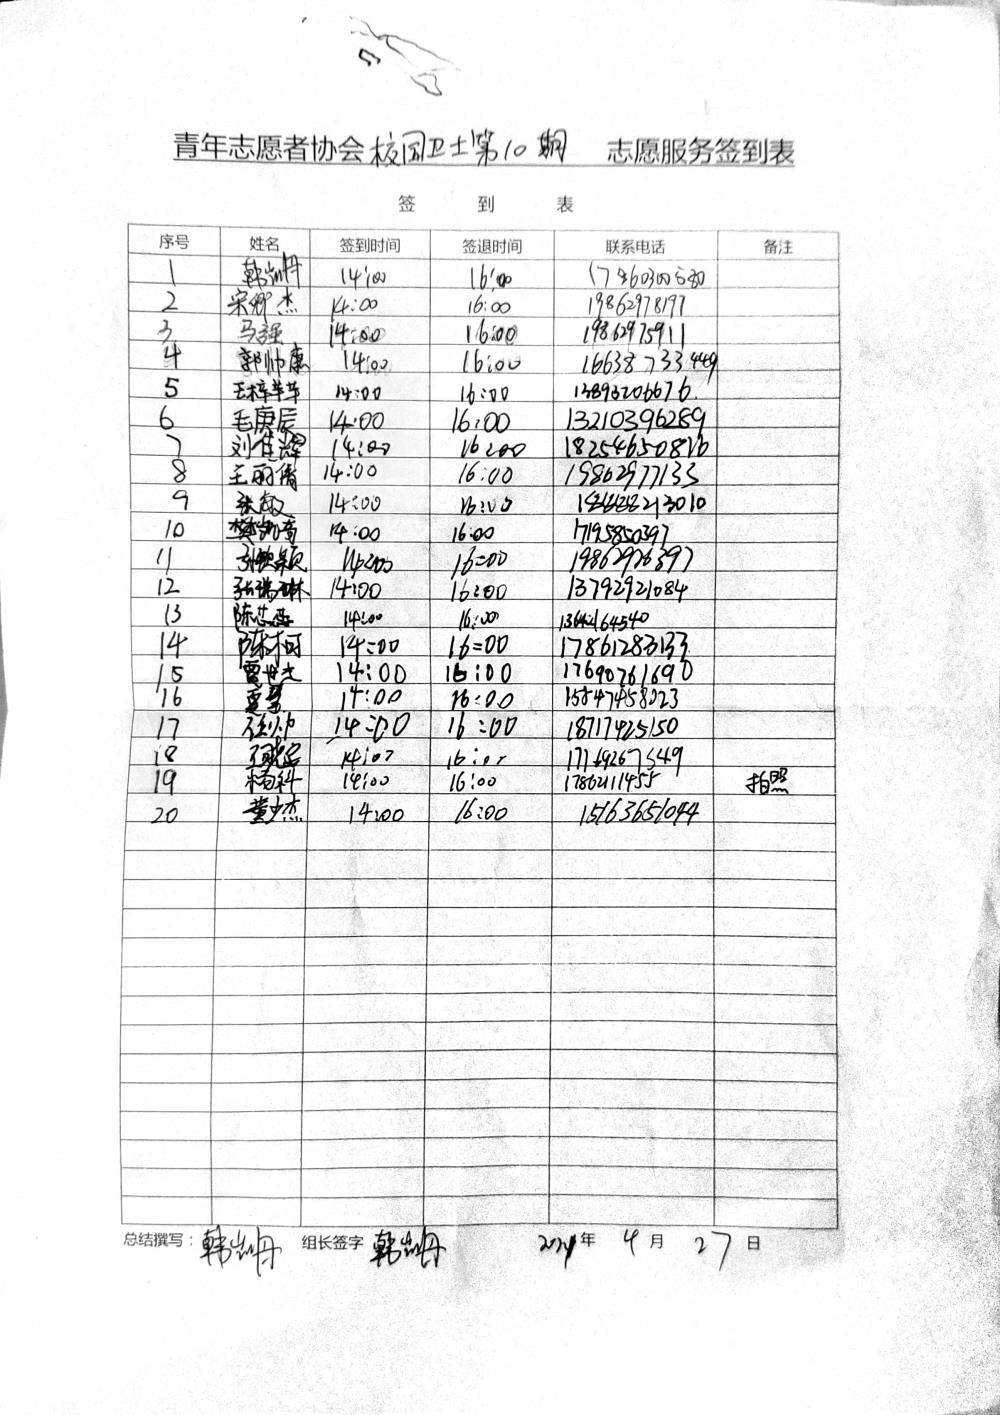 青年志愿者协会校园卫士第10期 志愿服务签到表
签 到 表
序号 姓名 签到时间 签退时间 联系电话 备注
1 14:00 16:00
2 14:00 16:00 19862978197
3 马强 14:00 16:00 19862975911
4 郭帅康 14:00 16:00 16638733449
5 14:00 16:00 13893206676
6 毛庚辰 14:00 16:00 13210396289
7 刘佳辉 14:00 16:00
8 王丽倩 14:00 16:00 19862977135
9 张敏 14:00 16:00
10 14:00 16:00 17195850397
11 14:00 16:00 19862926397
12 张瑞琳 14:00 16:00 13792921084
13 14:00 16:00
14 陈柯 14:00 16=00 17861283133
15 贾世杰 14:00 16:00 17690761690
16 14:00 16:00 15847458023
17 14:00 16:00 18717425150
18 16:00
19 杨科 14:00 16:00 17862111455 拍照
20 董少杰 14:00 16:00 15163651044
总结撰写： 组长签字 2024年 4月 27日